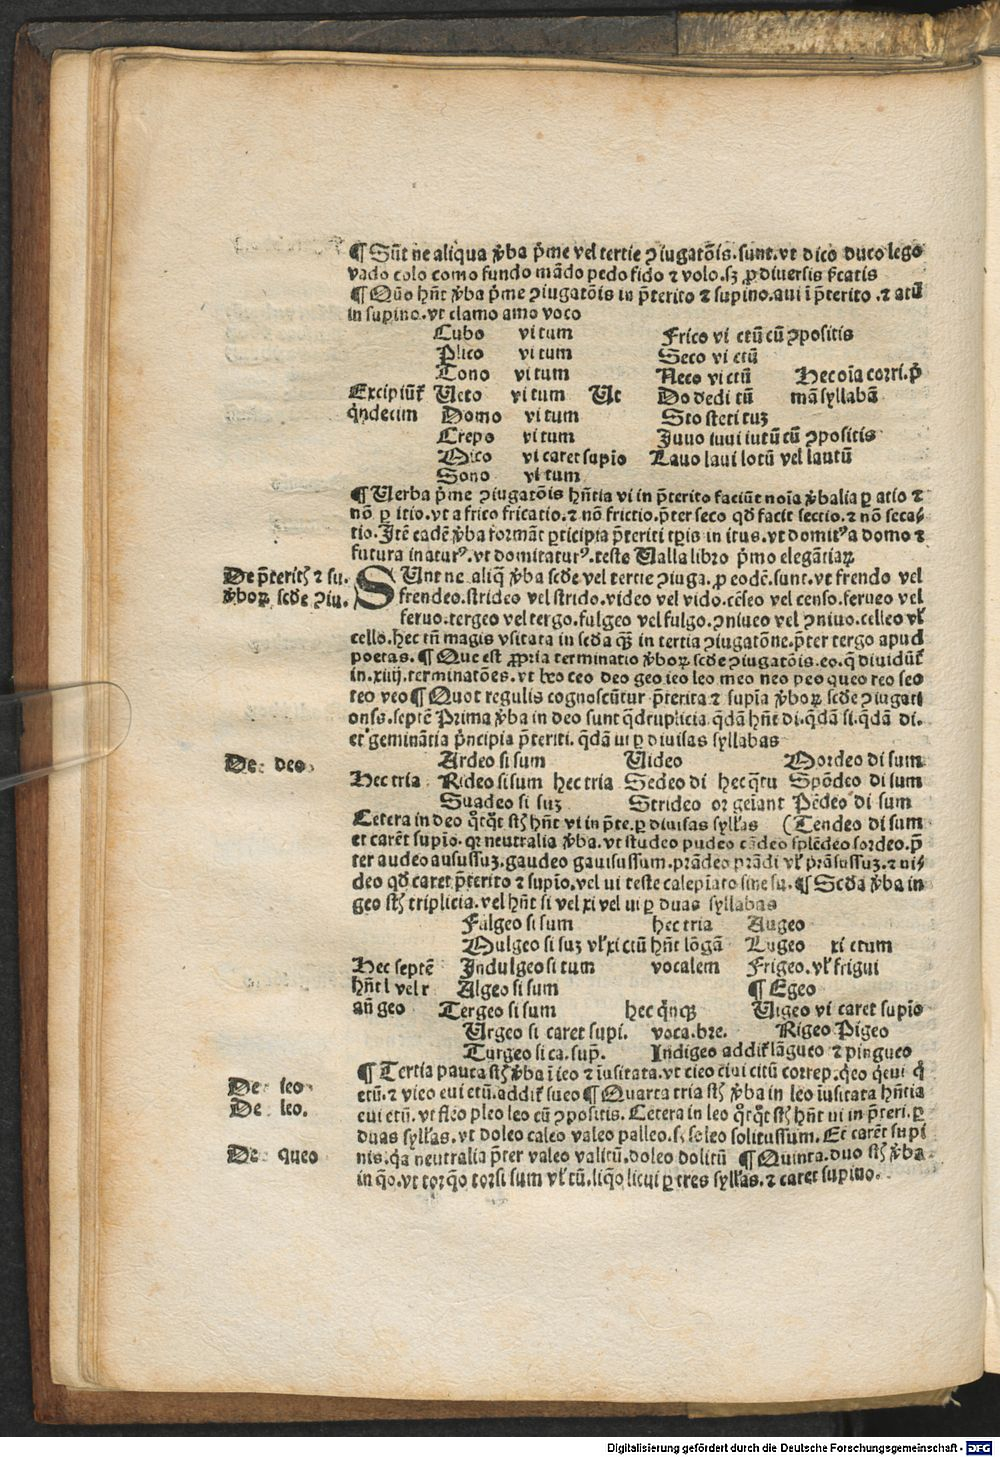 ¶ Sũt ne aliqua v̾ba p̄me vel tertie ꝯiugatõis. sunt. vt dico duco lego
vado colo como fundo mãdo pedo fido ⁊ volo. sꝫ ꝓ diuersis
¶ Quõ hñt v̾ba p̄me ꝯiugatõis in p̄terito ⁊ supino. aui ĩ p̄terito . ⁊ atũ
in supino. vt clamo amo voco
Cubo vi tum Frico vi ctũ cũ ꝯpositis
Plico vi tum Seco vi ctũ
Tono vi tum Neco vi ctũ Hec oĩa corri. p̄
Excipiũt̃ Ueto vi tum Ut Do dedi tũ mã syllabã
q̃ndecim Domo vi tum Sto steti tuꝫ
Crepo vi tum Juuo iuui iutũ cũ ꝯpositis
Mico vi caret supĩo Lauo laui lotũ vel lautũ
Sono vi tum
¶ Uerba p̄me ꝯiugatõis hñtia vi in p̄terito faciũt noĩa v̾balia ꝑ atio ⁊
nõ ꝑ itio. vt a frico fricatio. ⁊ nõ frictio. p̄ter seco qđ facit sectio. ⁊ nõ seca⸗
tio. Itẽ eadẽ v̾ba formãt ꝑticipia p̄teriti tꝑis in itus. vt domitꝰ a domo ⁊
futura in aturꝰ. vt domitaturꝰ. teste Ualla libro p̄mo elegãtiaꝝ
De p̄teritis ⁊ su.
v̾boꝝ scđe ꝯiu.
SUnt ne aliq̃ v̾ba scđe vel tertie ꝯiuga. ꝓ eodẽ. sunt. vt frendo vel
frendeo. strideo vel strido. video vel vido. cẽseo vel censo. ferueo vel
feruo. tergeo vel tergo. fulgeo vel fulgo. ꝯniueo vel ꝯniuo. celleo vľ
cello. hec tñ magis vsitata in scđa qꝫ in tertia ꝯiugatõne. p̄ter tergo apud
poetas. ¶ Que est ꝓpria terminatio v̾boꝝ scđe ꝯiugatõis. eo. q̃ diuidũt̃
in. xiiij. terminatões. vt beo ceo deo geo ieo leo meo neo peo queo reo seo
teo veo ¶ Quot regulis cognoscũtur p̄terita ⁊ supĩa v̾boꝝ scđe ꝯiugati
onis. septẽ Prima v̾ba in deo sunt q̃druplicia. q̃dã hñt di. q̃dã si. q̃dã di.
et geminãtia p̄ncipia p̄teriti. q̃dã ui ꝑ diuisas syllabas
De deo.
Ardeo si sum Uideo Mordeo di sum
Hec tria Rideo si sum hec tria Sedeo di hec q̃tu Spõdeo di sum
Suadeo si suꝫ Strideo or geĩant Pẽdeo di sum
Cetera in deo q̃tq̃t st̃ hñt vi in p̄te. ꝑ diuisas sylľas (Tendeo di sum
et carẽt supĩo. qꝛ neutralia v̾ba. vt studeo pudeo cãdeo splẽdeo sordeo. p̄
ter audeo ausussuꝫ. gaudeo gauisussum. prãdeo prãdi vľ prãsussuꝫ. ⁊ ui⸗
deo qđ caret p̄terito ⁊ supĩo. vel ui teste calepĩato sine su. ¶ Scđa v̾ba in
geo st̃ triplicia. vel hñt si vel xi vel ui ꝑ duas syllabas
Fulgeo si sum hec tria Augeo
Mulgeo si suꝫ vľ xi ctũ hñt lõgã Lugeo xi ctum
Hec septẽ Indulgeo si tum vocalem Frigeo. vľ frigui
hñt l vel r Algeo si sum ¶ Egeo
añ geo Tergeo si sum hec q̃nqꝫ Uigeo vi caret supĩo
Urgeo si caret supi. voca. bre. Rigeo Pigeo
Turgeo si ca. sup̄. Indigeo addit̃ lãgueo ⁊ pingueo
¶ Tertia pauca st̃ v̾ba ĩ ieo ⁊ ĩusitata. vt cieo ciui citũ correp. q̃eo q̃eui
De ieo.
etũ. ⁊ vieo eui etũ. addit̃ sueo ¶ Quarta tria st̃ v̾ba in leo ĩusitata hñtia
De leo.
eui etũ. vt fleo pleo leo cũ ꝯpositis. Cetera in leo q̃tq̃t st̃ hñt ui in p̄teri. ꝑ
duas sylľas. vt doleo caleo valeo palleo. sꝫ soleo solitussum. Et carẽt supi
De queo
nis. q̃a neutralia p̄ter valeo valitũ. doleo dolitũ ¶ Quinta. duo st̃ v̾ba
in q̃o. vt torq̃o torsi sum vľ tũ. liq̃o licui ꝑ tres sylľas. ⁊ caret supino.
Digitalisierung gefördert durch die Deutsche Forschungsgemeinschaft - DFG